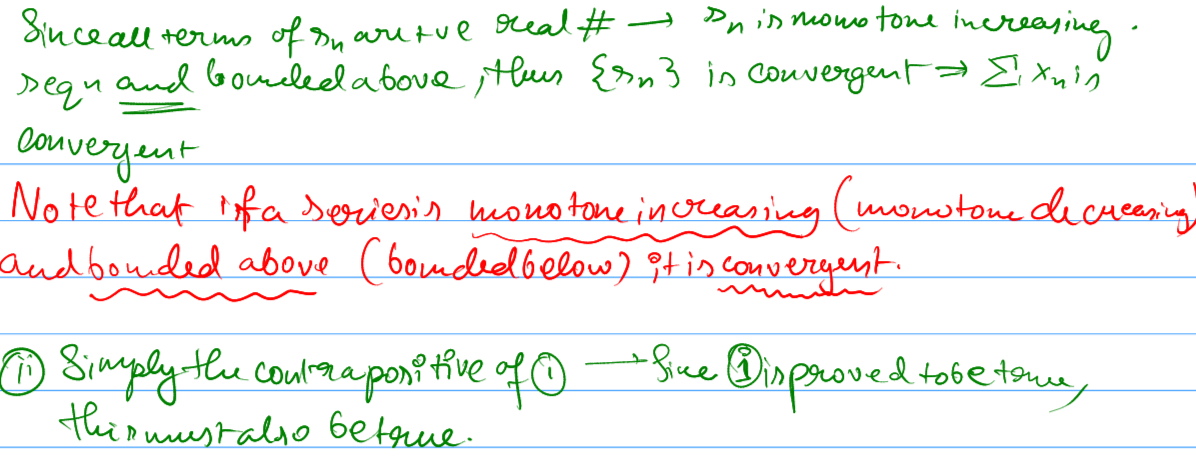 Since all terms of sn are +ve real # → sn is monotone increasing.
seqn and bounded above, thus {sn} is convergent ⇒ Σ xn is
convergent
Note that if a series is monotone increasing (monotone decreasing)
and bounded above (bounded below) it is convergent.
(ii) Simply the contrapositive of (i) → Since (i) is proved to be true,
this must also be true.